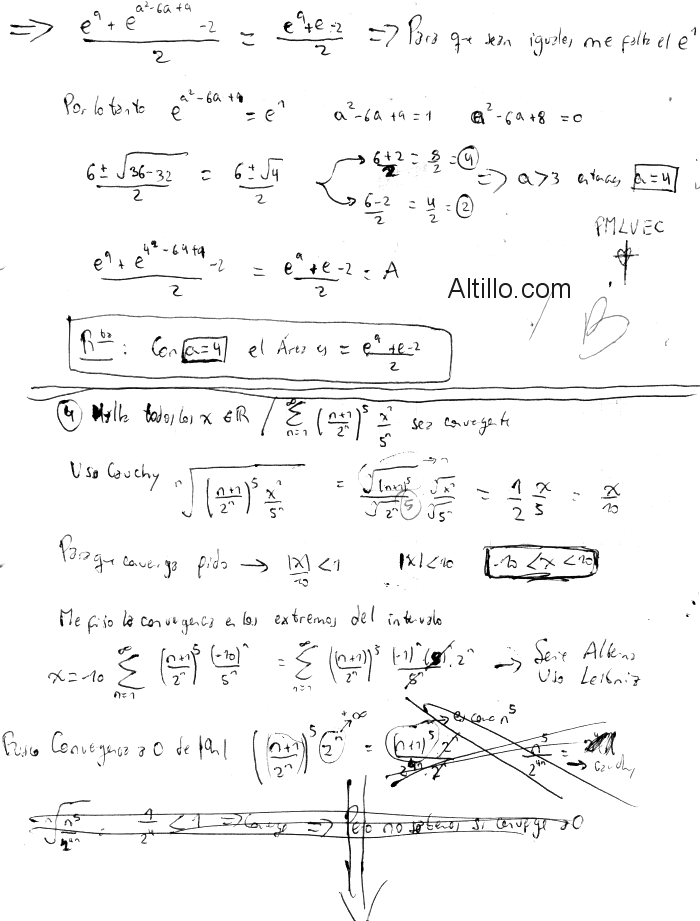 => (e^9 + e^(a²-6a+9) - 2)/2 = (e^9 + e - 2)/2 => Para que sean iguales me falta el e^1
Por lo tanto e^(a²-6a+9) = e^1 a²-6a+9 = 1 a²-6a+8 = 0
(6 ± √(36-32))/2 = (6 ± √4)/2 → (6+2)/2 = 8/2 = 4 => a>3 entonces a=4
→ (6-2)/2 = 4/2 = 2
PMLVEC
(e^9 + e^(4²-6·4+9) - 2)/2 = (e^9 + e - 2)/2 = A
Altillo.com
B
Rta: Con a=4 el Área es = (e^9 + e - 2)/2
4) Halla todos los x ∈ R / ∑_{n=1}^∞ ((n+1)/2^n)^5 x^n/5^n sea convergente
Uso Cauchy ⁿ√(((n+1)/2^n)^5 x^n/5^n) = ⁿ√(n+1)^5/ⁿ√2^n^5 ⁿ√x^n/ⁿ√5^n = 1/2 x/5 = x/10
Para que converga pido → |x|/10 < 1 |x| < 10 -10 < x < 10
Me fijo la convergencia en los extremos del intervalo
x=-10 ∑_{n=1}^∞ ((n+1)/2^n)^5 (-10)^n/5^n = ∑_{n=1}^∞ ((n+1)/2^n)^5 (-1)^n (5)^n/5^n · 2^n → Serie Alterna
Uso Leibniz
Busco Convergencia a 0 de |an| ((n+1)/2^n)^5 2^n = (n+1)^5 2^n/2^4n · 2^n n^5/2^4n
+∞
es como n^5
→ Cauchy
ⁿ√(n^5/2^4n) = 1/2^4 < 1 => Converge => Pero no sabemos si converge a 0